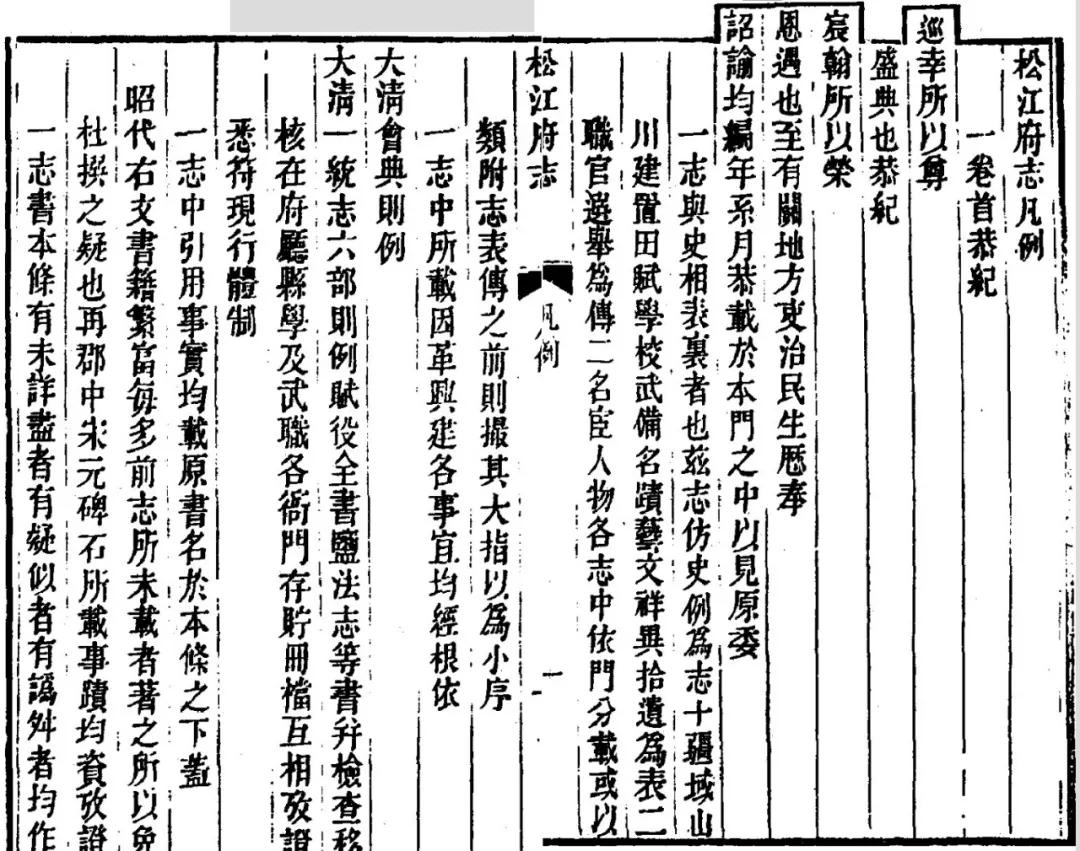 松江府志凡例
一卷首恭紀
巡幸所以尊
盛典也恭紀
宸翰所以榮
恩遇也至有關地方吏治民生歷奉
詔諭均編年系月恭載於本門之中以見原委
一志與史相表裏者也茲志仿史例為志十疆域山
川建置田賦學校武備名蹟藝文祥異拾遺為表二
職官選舉為傳二名臣人物各志中依門分載或以
松江府志
凡例
一
類附志表傳之前則撮其大指以為小序
一志中所載因革興建各事宜均經根依
大清會典則例
大清一統志六部則例賦役全書鹽法志等書幷檢查移
核在府廳縣學及武職各衙門存貯冊檔互相攷證
悉符現行體制
一志中引用事實均載原書名於本條之下蓋
昭代右文書籍繁富每多前志所未載者著之所以免
杜撰之疑也再郡中宋元碑石所載事蹟均資攷證
一志書本條有未詳盡者有疑似者有譌舛者均作